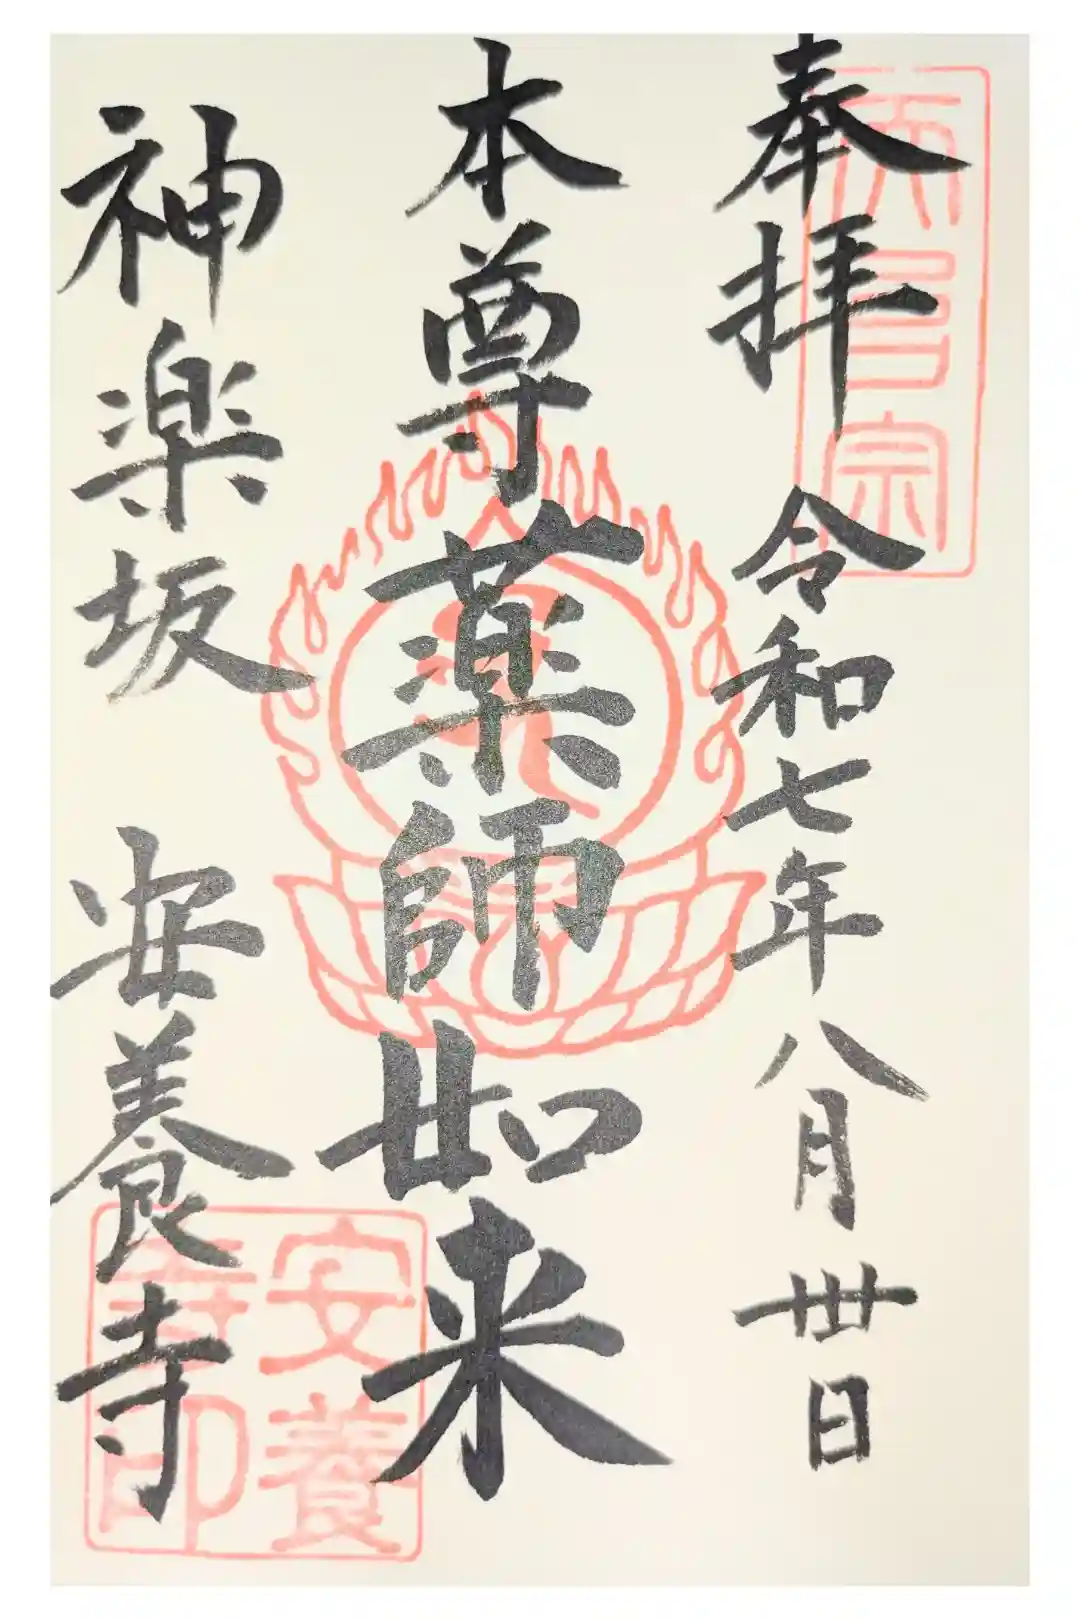 奉拝 令和七年八月卅日
天台宗
本尊薬師如来
神楽坂 安養寺
安養寺印